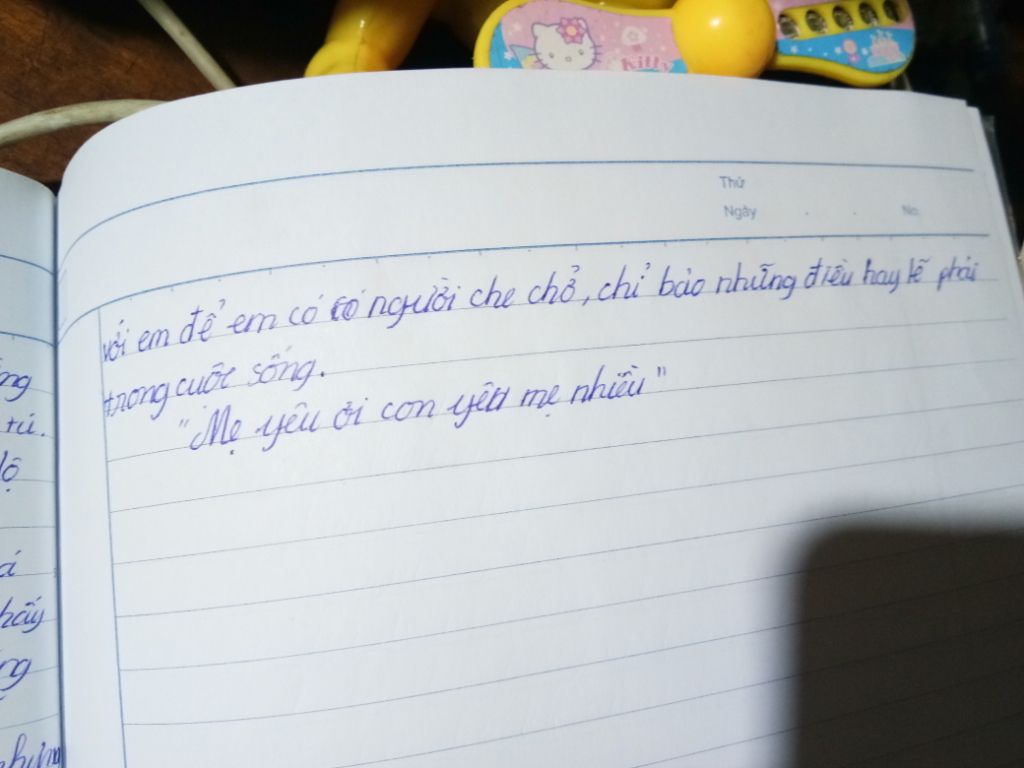 Kitty
Thứ
Ngày . . No
với em để em có có người che chở, chỉ bảo những điều hay lẽ phải
trong cuộc sống.
"Mẹ yêu ơi con yêu mẹ nhiều"
ng
tú.
lộ
á
hấy
ng